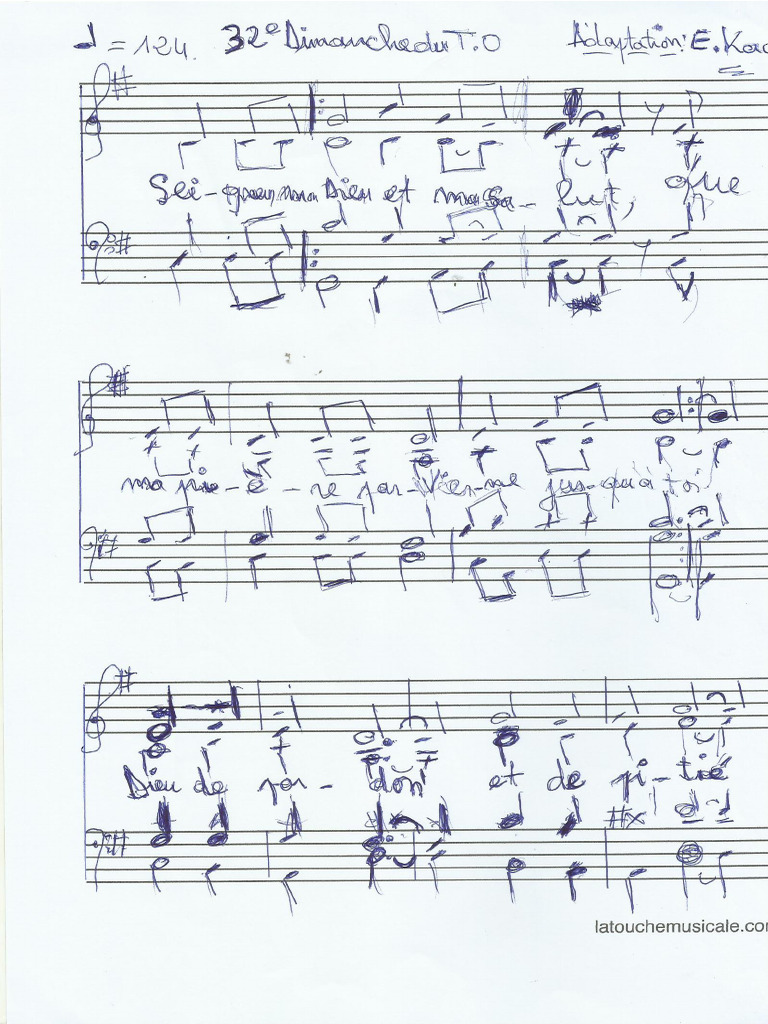 ♩ = 124. 32e Dimanche du T.O Adaptation: E.
Sei-gneur mon Dieu et mon Sa-lut, que
ma priè-è-re par-vien-ne jus-qu'à toi
Dieu de par-don et de pi-tié
latouchemusicale.co